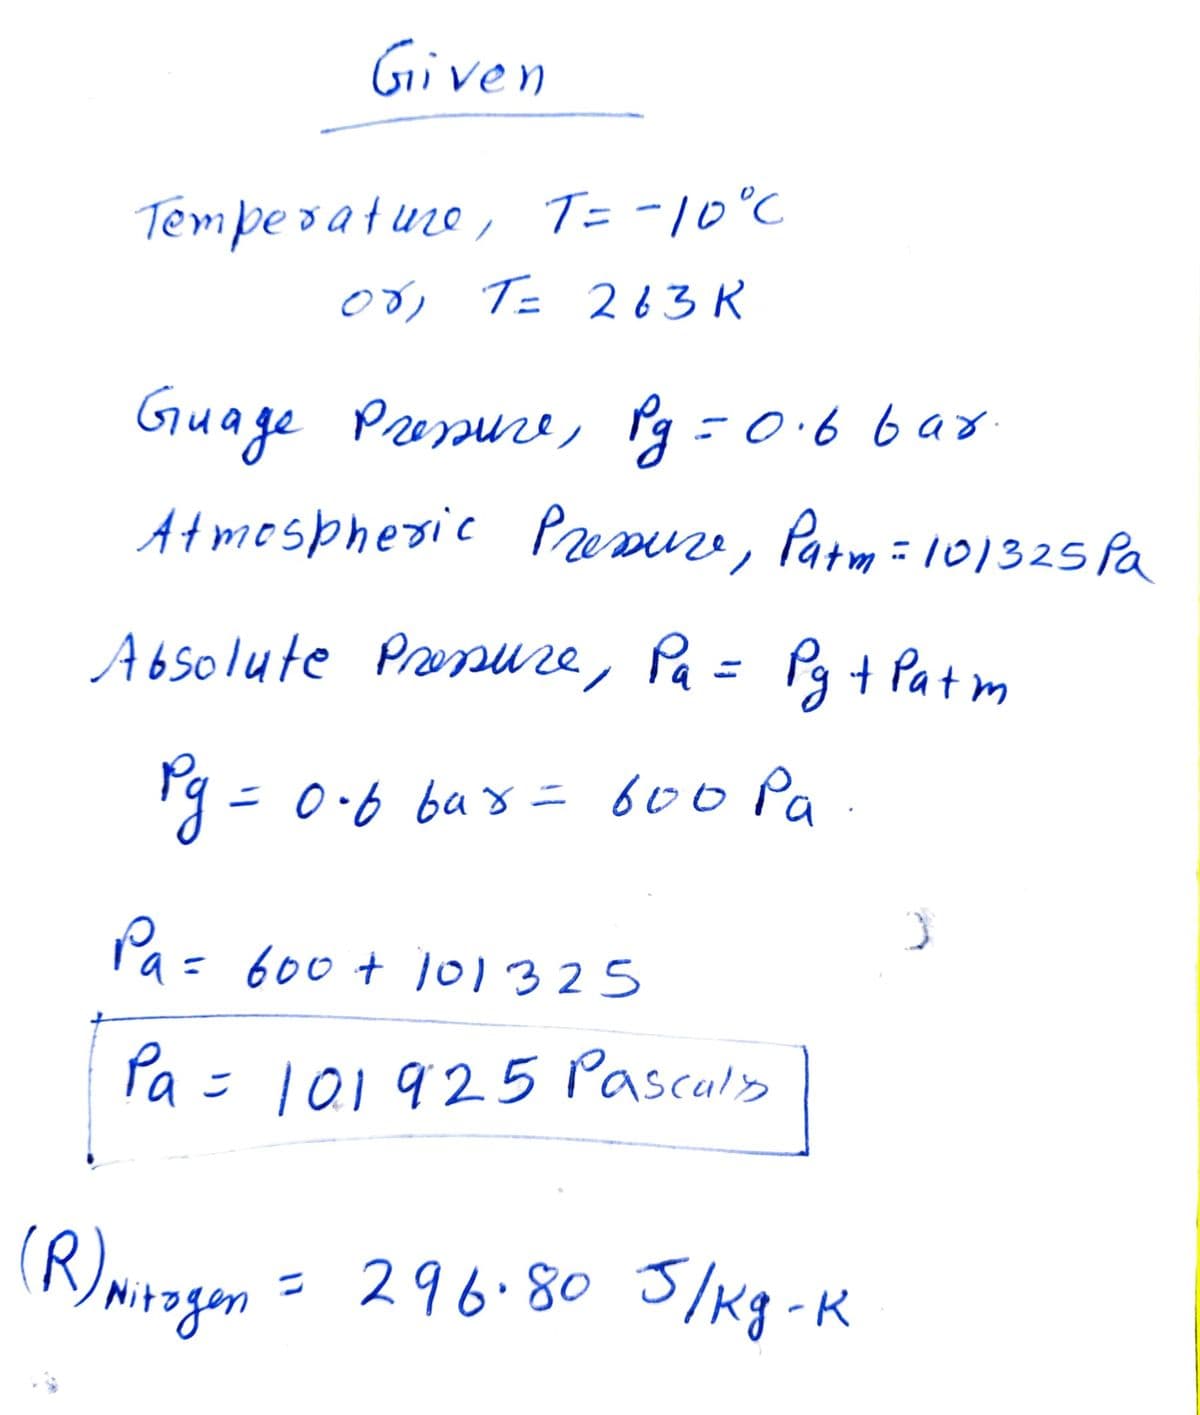 Given
Temperature, T= -10°C
or, T= 263K
Guage Pressure, Pg = 0.6 bar.
Atmospheric Pressure, Patm = 101325 Pa
Absolute Pressure, Pa = Pg + Patm
Pg = 0.6 bar = 600 Pa.
Pa = 600 + 101325
Pa = 101925 Pascals
(R)Nitrogen = 296.80 J/Kg-K